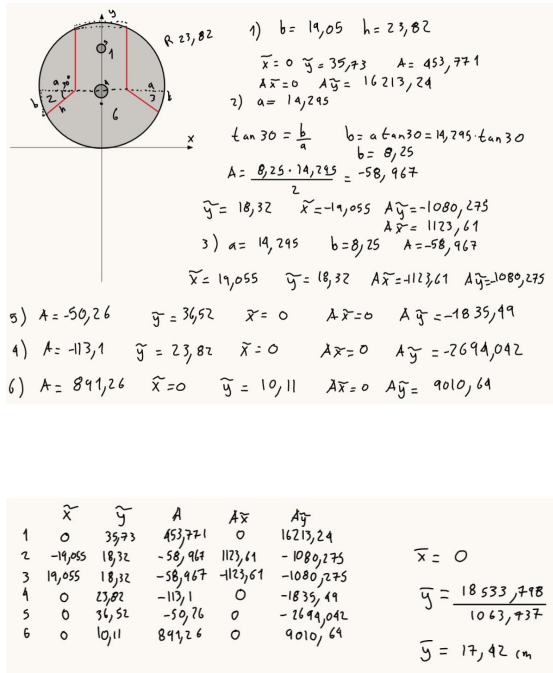 y
R 23,82
1) b = 19,05 h = 23,82
1
x̃ = 0 ỹ = 35,73 A = 453,771
Ax̃ = 0 Aỹ = 16213,24
a
2
b
h
a
3
b
6
x
2) a = 14,295
tan 30 = b/a b = a tan 30 = 14,295 · tan 30
b = 8,25
A = 8,25 · 14,295 / 2 = -58,967
ỹ = 18,32 x̃ = -19,055 Aỹ = -1080,275
Ax̃ = 1123,61
3) a = 14,295 b = 8,25 A = -58,967
x̃ = 19,055 ỹ = 18,32 Ax̃ = -1123,61 Aỹ = -1080,275
5) A = -50,26 ỹ = 36,52 x̃ = 0 Ax̃ = 0 Aỹ = -1835,49
4) A = -113,1 ỹ = 23,82 x̃ = 0 Ax̃ = 0 Aỹ = -2694,042
6) A = 891,26 x̃ = 0 ỹ = 10,11 Ax̃ = 0 Aỹ = 9010,64
x̃ ỹ A Ax̃ Aỹ
1 0 35,73 453,771 0 16213,24
2 -19,055 18,32 -58,967 1123,61 -1080,275
3 19,055 18,32 -58,967 -1123,61 -1080,275
4 0 23,82 -113,1 0 -1835,49
5 0 36,52 -50,26 0 -2694,042
6 0 10,11 891,26 0 9010,64
x̄ = 0
ȳ = 18533,798 / 1063,737
ȳ = 17,42 cm